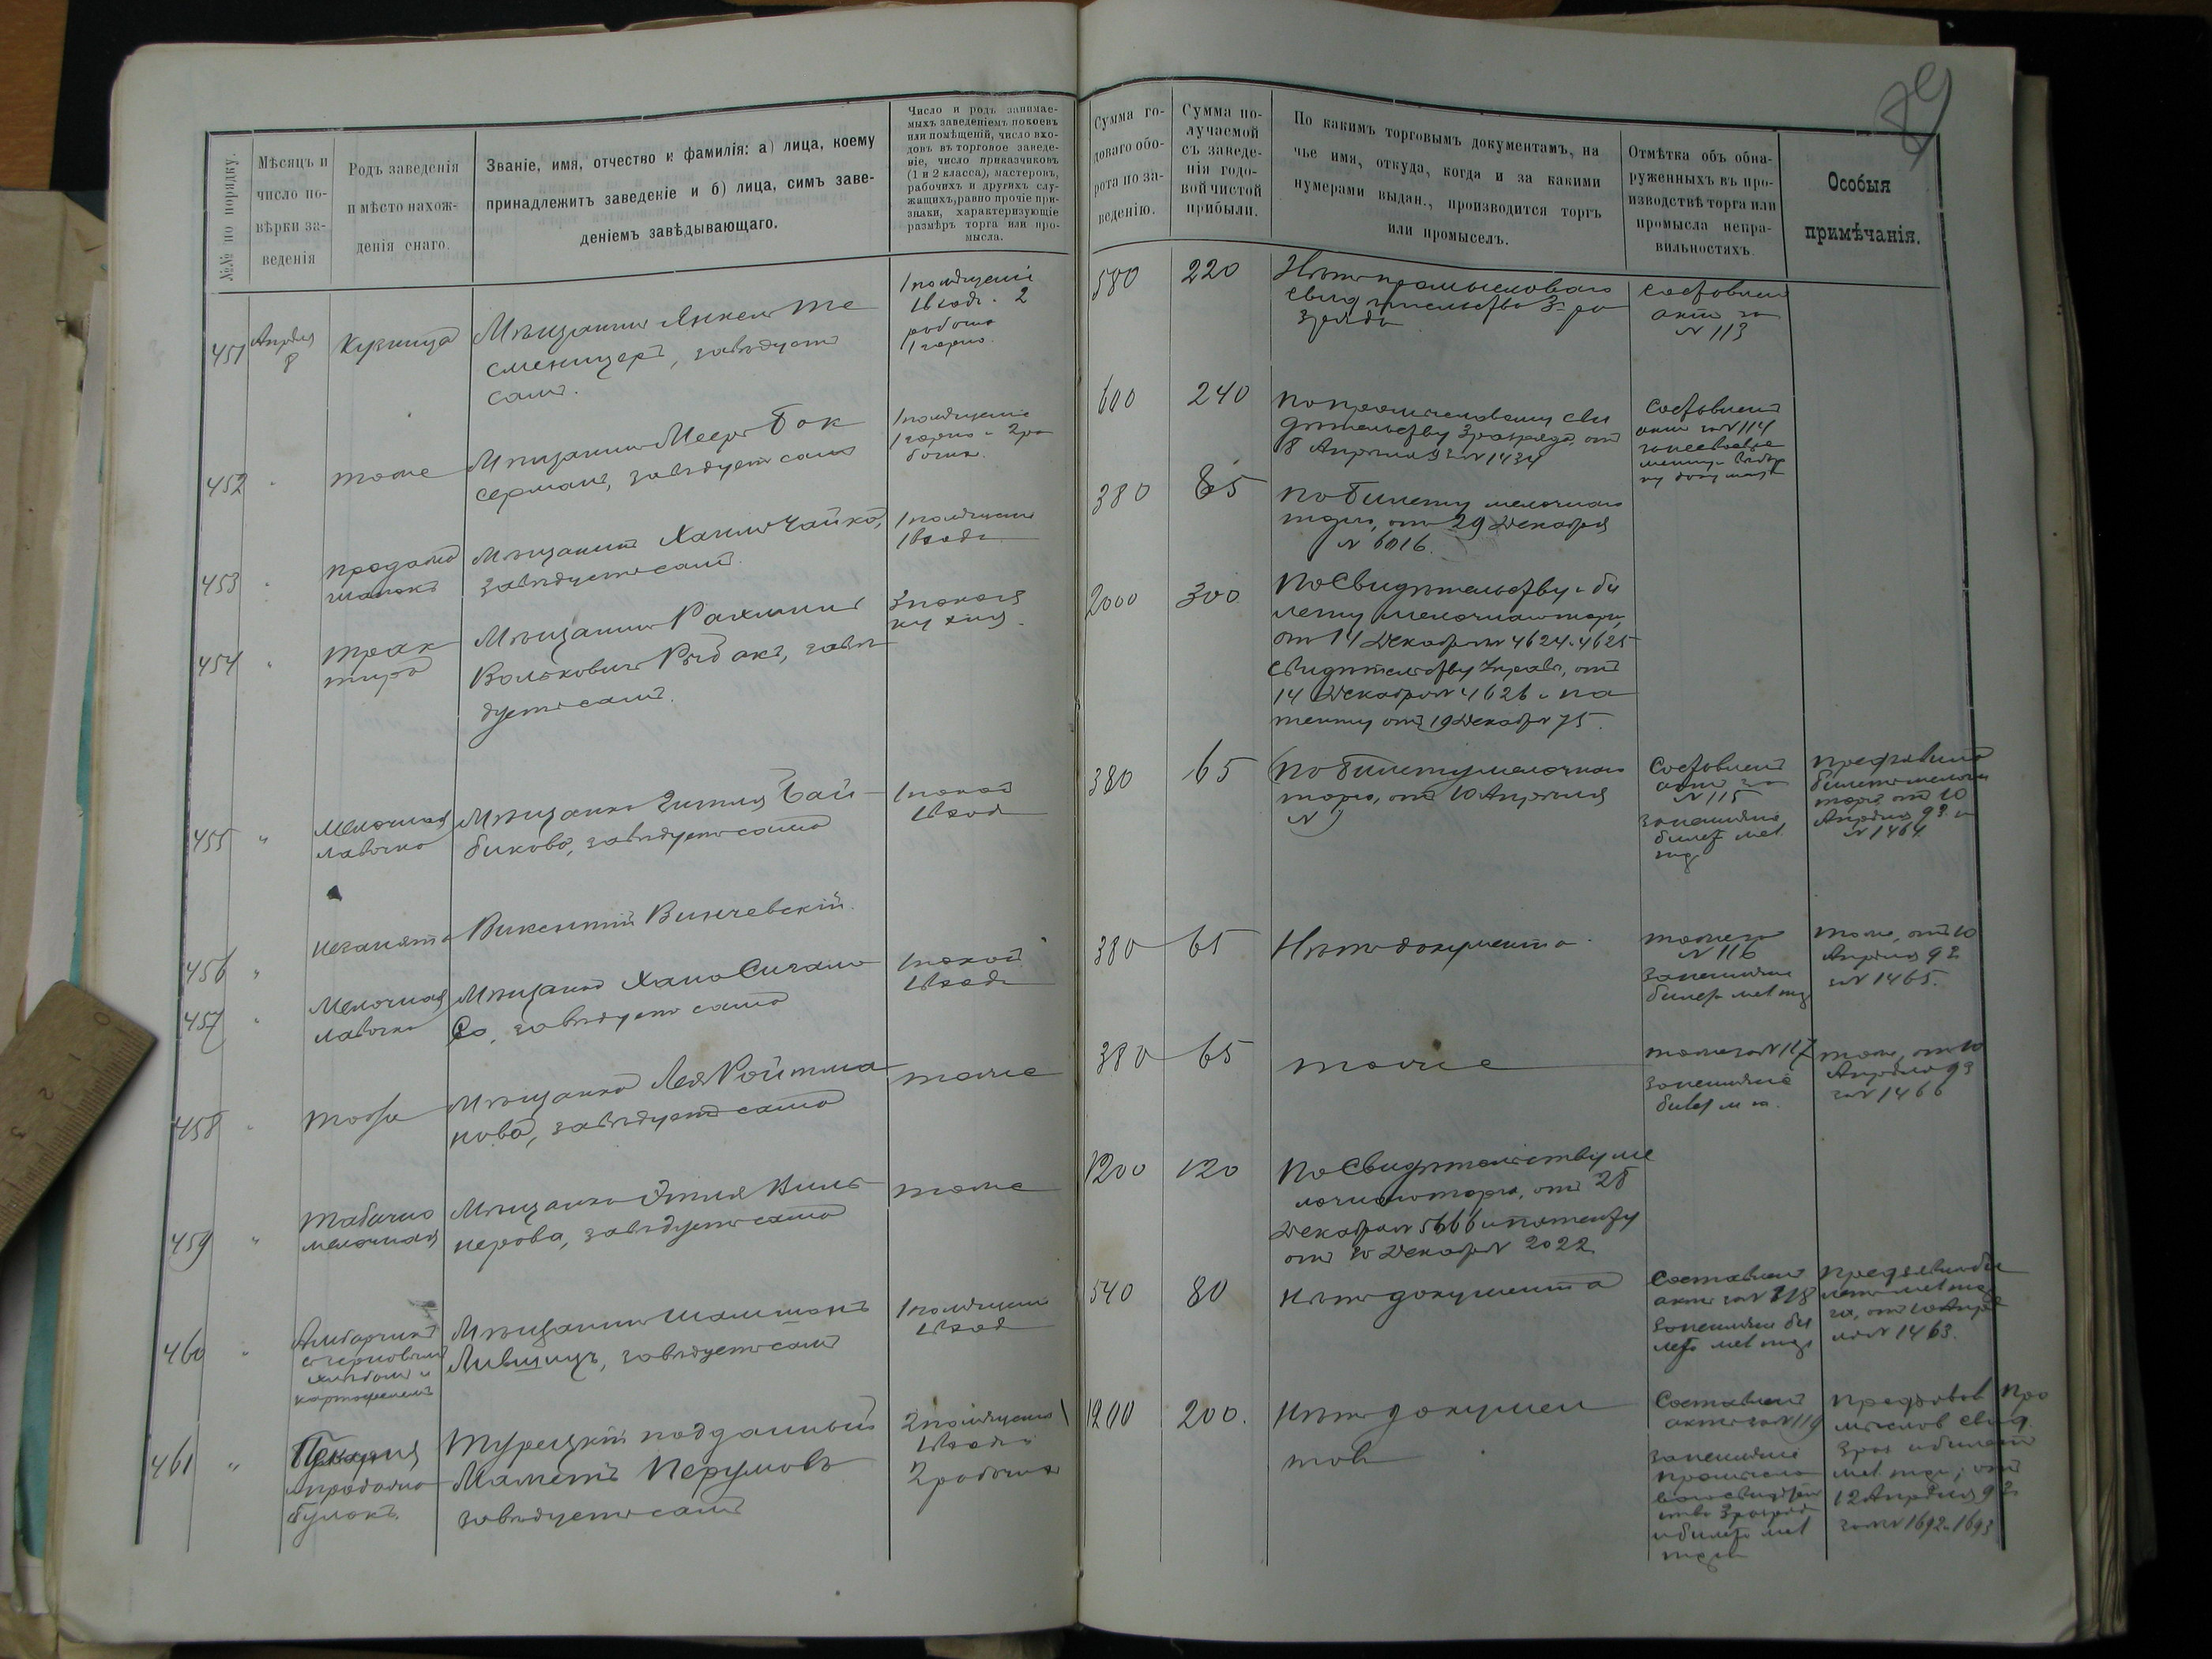 89
№№ по порядку.
Мѣсяцъ и
число по-
вѣрки за-
веденія
Родъ заведенія
и мѣсто нахож-
денія онаго.
Званіе, имя, отчество и фамилія: а) лица, коему
принадлежитъ заведеніе и б) лица, симъ заве-
деніемъ завѣдывающаго.
Число и родъ занимае-
мыхъ заведеніемъ покоевъ
или помѣщеній, число вхо-
довъ въ торговое заведе-
ніе, число приказчиковъ
(1 и 2 класса), мастеровъ,
рабочихъ и другихъ слу-
жащихъ, равно прочіе при-
знаки, характеризующіе
размѣръ торга или про-
мысла.
Сумма го-
доваго обо-
рота по за-
веденію.
Сумма по-
лучаемой
съ заведе-
нія годо-
вой чистой
прибыли.
По какимъ торговымъ документамъ, на
чье имя, откуда, когда и за какими
нумерами выдан., производится торгъ
или промыселъ.
Отмѣтка объ обна-
руженныхъ въ про-
изводствѣ торга или
промысла непра-
вильностяхъ.
Особыя
примѣчанія.
451
Апрѣля
8
Кузница
Мѣщанинъ Янкель Ме
сменицеръ, завѣдуетъ
самъ.
1 помѣщеніе
1 входъ. 2
рабочихъ
1 горно.
580
220
Нѣтъ промысловаго
свидѣтельства 3 ра
зряда
Составленъ
актъ за
№ 113
452
тоже
Мѣщанинъ Мееръ Бок
серманъ, завѣдуетъ самъ
1 помѣщеніе
1 горно и 2 ра
бочихъ.
600
240
По промысловому сви
дѣтельству 3 разряда, отъ
8 Апрѣля 93 № 1434
Составленъ
актъ за № 114
453
Продажа
шапокъ
Мѣщанинъ Хаимъ Чайка,
завѣдуетъ самъ.
1 помѣщеніе
1 входъ.
380
85
По билету мелочнаго
торга, отъ 29 Декабря
№ 6016.
454
"
Трак
тиръ
Мѣщанинъ Рахмиль
Вольковичъ Рыбакъ, завѣ
дуетъ самъ.
3 покоя
кухня.
2000
300
По свидѣтельству и би
лету мелочнаго торга,
от 14 Декабря № 4624 и 4625
свидѣтельству Управы, отъ
14 Декабря № 4626 и па
тенту отъ 19 Декабр № 75.
455
"
Мелочная
лавочка
Мѣщанка Гитля Бай
бикова, завѣдуетъ сама
1 покой
1 входъ
380
65
По билету мелочнаго
торга, отъ 10 Апрѣля
№
Составленъ
актъ за
№ 115
за неимѣніе
билета мел
торг
Предъявила
билетъ мелочн
торга, отъ 10
Апрѣля 93 г.
№ 1464
456
"
незанята
Викентій Винчевскій.
457
"
Мелочная
лавочка
Мѣщанка Хана
завѣдуетъ сама
1 покой
1 входъ
380
65
Нѣтъ документа.
тоже за
№ 116
за неимѣніе
билета мел торг
тоже, отъ 10
Апрѣля 93
за № 1465.
458
тоже
Мѣщанка Лея Ройтма
нова, завѣдуетъ сама
тоже
380
65
тоже
тоже за № 117
за неимѣніе
билет м т.
тоже, отъ 10
Апрѣля 93
за № 1466
459
"
Табачно
мелочная
Мѣщанка Этля Виль
нерова, завѣдуетъ сама
тоже
1200
120
По свидѣтельству ме
лочнаго торга, отъ 28
Декабря № 5666 и патенту
отъ 30 Декабря № 2022.
460
"
Амбарчикъ
съ зерновымъ
хлѣбомъ и
картофелемъ
Мѣщанинъ Шамшонъ
Лившицъ, завѣдуетъ самъ
1 помѣщеніе
1 входъ
540
80
Нѣтъ документа
Составленъ
актъ за № 118
за неимѣніе би
лета мел торг
Предъявилъ би
летъ мел тор
га, отъ 10 Апрѣ
ля № 1463.
461
"
Пекарня
и продажа
булокъ.
Турецкій подданный
Маметъ Перумовъ
завѣдуетъ самъ
2 помѣщенія
1 входъ
2 рабочихъ
1200
200.
Нѣтъ докумен
товъ
Составленъ
актъ за № 119
за неимѣніе
промысло
ваго свидѣтель
ства 3 разряда
и билета мел
торга
Предъявов про
мыслов свид.
3 раз и билетъ
мел торг; отъ
12 Апрѣля 93
за №№ 1692 и 1693